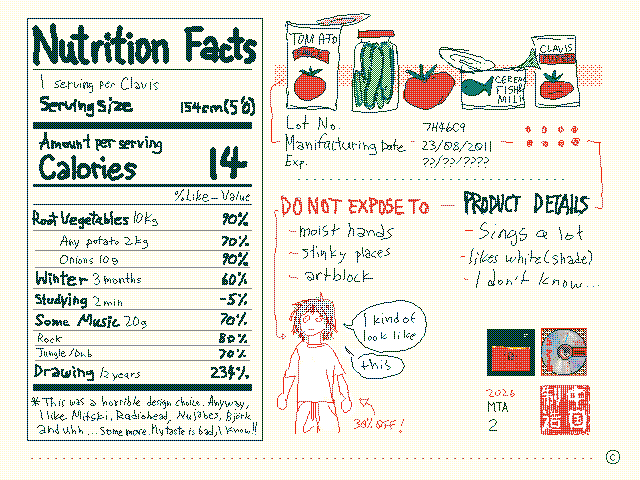 Nutrition Facts
1 serving per Clavis
Serving size 154cm(5'0)
Amount per serving
Calories 14
% Like-Value
Root Vegetables 10kg 90%
Any potato 2kg 70%
Onions 10g 90%
Winter 3 months 60%
Studying 2 min -5%
Some Music 20g 70%
Rock 80%
Jungle/Dnb 70%
Drawing 12 years 234%
* This was a horrible design choice. Anyway,
I like Mitski, Radiohead, Nujabes, Björk
and uhh... Some more. My taste is bad, I know!!
TOMATO
CEREAL
FISH&
MILK
CLAVIS
Lot No. 7H46C9
Manifacturing Date 23/08/2011
Exp. ??/??/????
DO NOT EXPOSE TO
-moist hands
-stinky places
-artblock
PRODUCT DETAILS
-Sings a lot
-likes white(shade)
-I don't know...
I kind of
look like
this
30% OFF!
2026
MTA
2
©